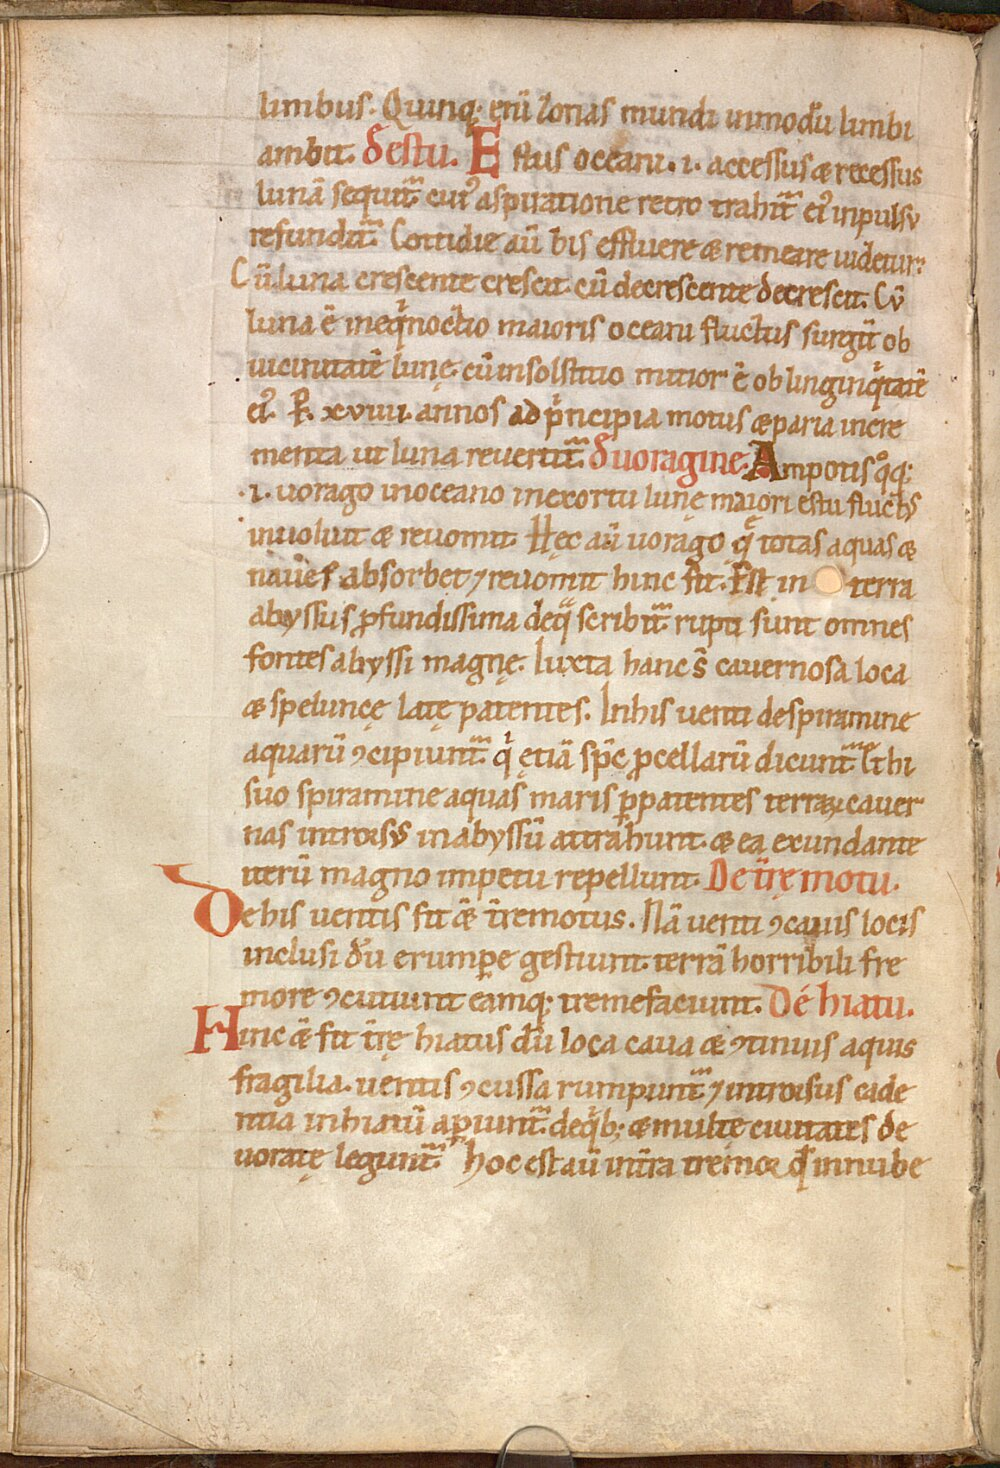 limbus. Quinq; enī zonas mundi inmodū limbi
ambit. De estu. Estus oceani .i. accessus & recessus
lunā sequit᷑ cui᷒ aspiratione retro trahit᷑ ei᷒ inpulsu
refundit᷑. Cottidie aū bis effluere & remeare uidetur.
Cū luna crescente crescit. cū decrescente decrescit. Cū
luna ē ineqͥnoctio maioris oceani fluctus surgūt ob
uicinitatē lunę. cū insolstitio mitior ē ob linginqͥtatē
ei᷒. P. xviiii. annos ad pͥncipia motus & paria incre
menta ut luna reuertit᷑. De uoragine. Ampotis qͦq;
.i. uorago inoceano inexortu lunę maiori estu fluctꝰ
inuoluit & reuomit. Hęc aū uorago q̄ totas aquas &
naues absorbet ⁊ reuomit hinc fit. Est in terra
abyssus ꝓfundissima deqͣ scribit᷑ rupti sunt omnes
fontes abyssi magnę. Iuxta hanc s̄ cauernosa loca
& speluncę latę patentes. Inhis uenti de spiramine
aquarū ꝯcipiunt᷑. qͥ ętiā sp̄c ꝓcellarū dicunt᷑. Et hi
suo spiramine aquas maris ꝑ patentes terraꝝ cauer
nas introrsꝰ in abyssū attrahunt. & ea exundante
iterū magno impetu repellunt. De t̄rę motu.
De his uentis fit &̄ t̄remotus. Nā uenti ꝯcauis locis
inclusi dū erumpe gestiunt. terrā horribili fre
more ꝯcutiunt eamq; tremefaciunt. De hiatu.
Hinc &̄ fit t̄rę hiatus dū loca caua & ꝯtinuis aquis
fragilia. uentis ꝯcussa rumpunt᷑ ⁊ introrsus cade
ntia in hiatū aꝑiunt᷑. deqͥb; & multe ciuitates de
uoratę legunt᷑. Hoc est aū int̄ra tremor qͣ̄ innube